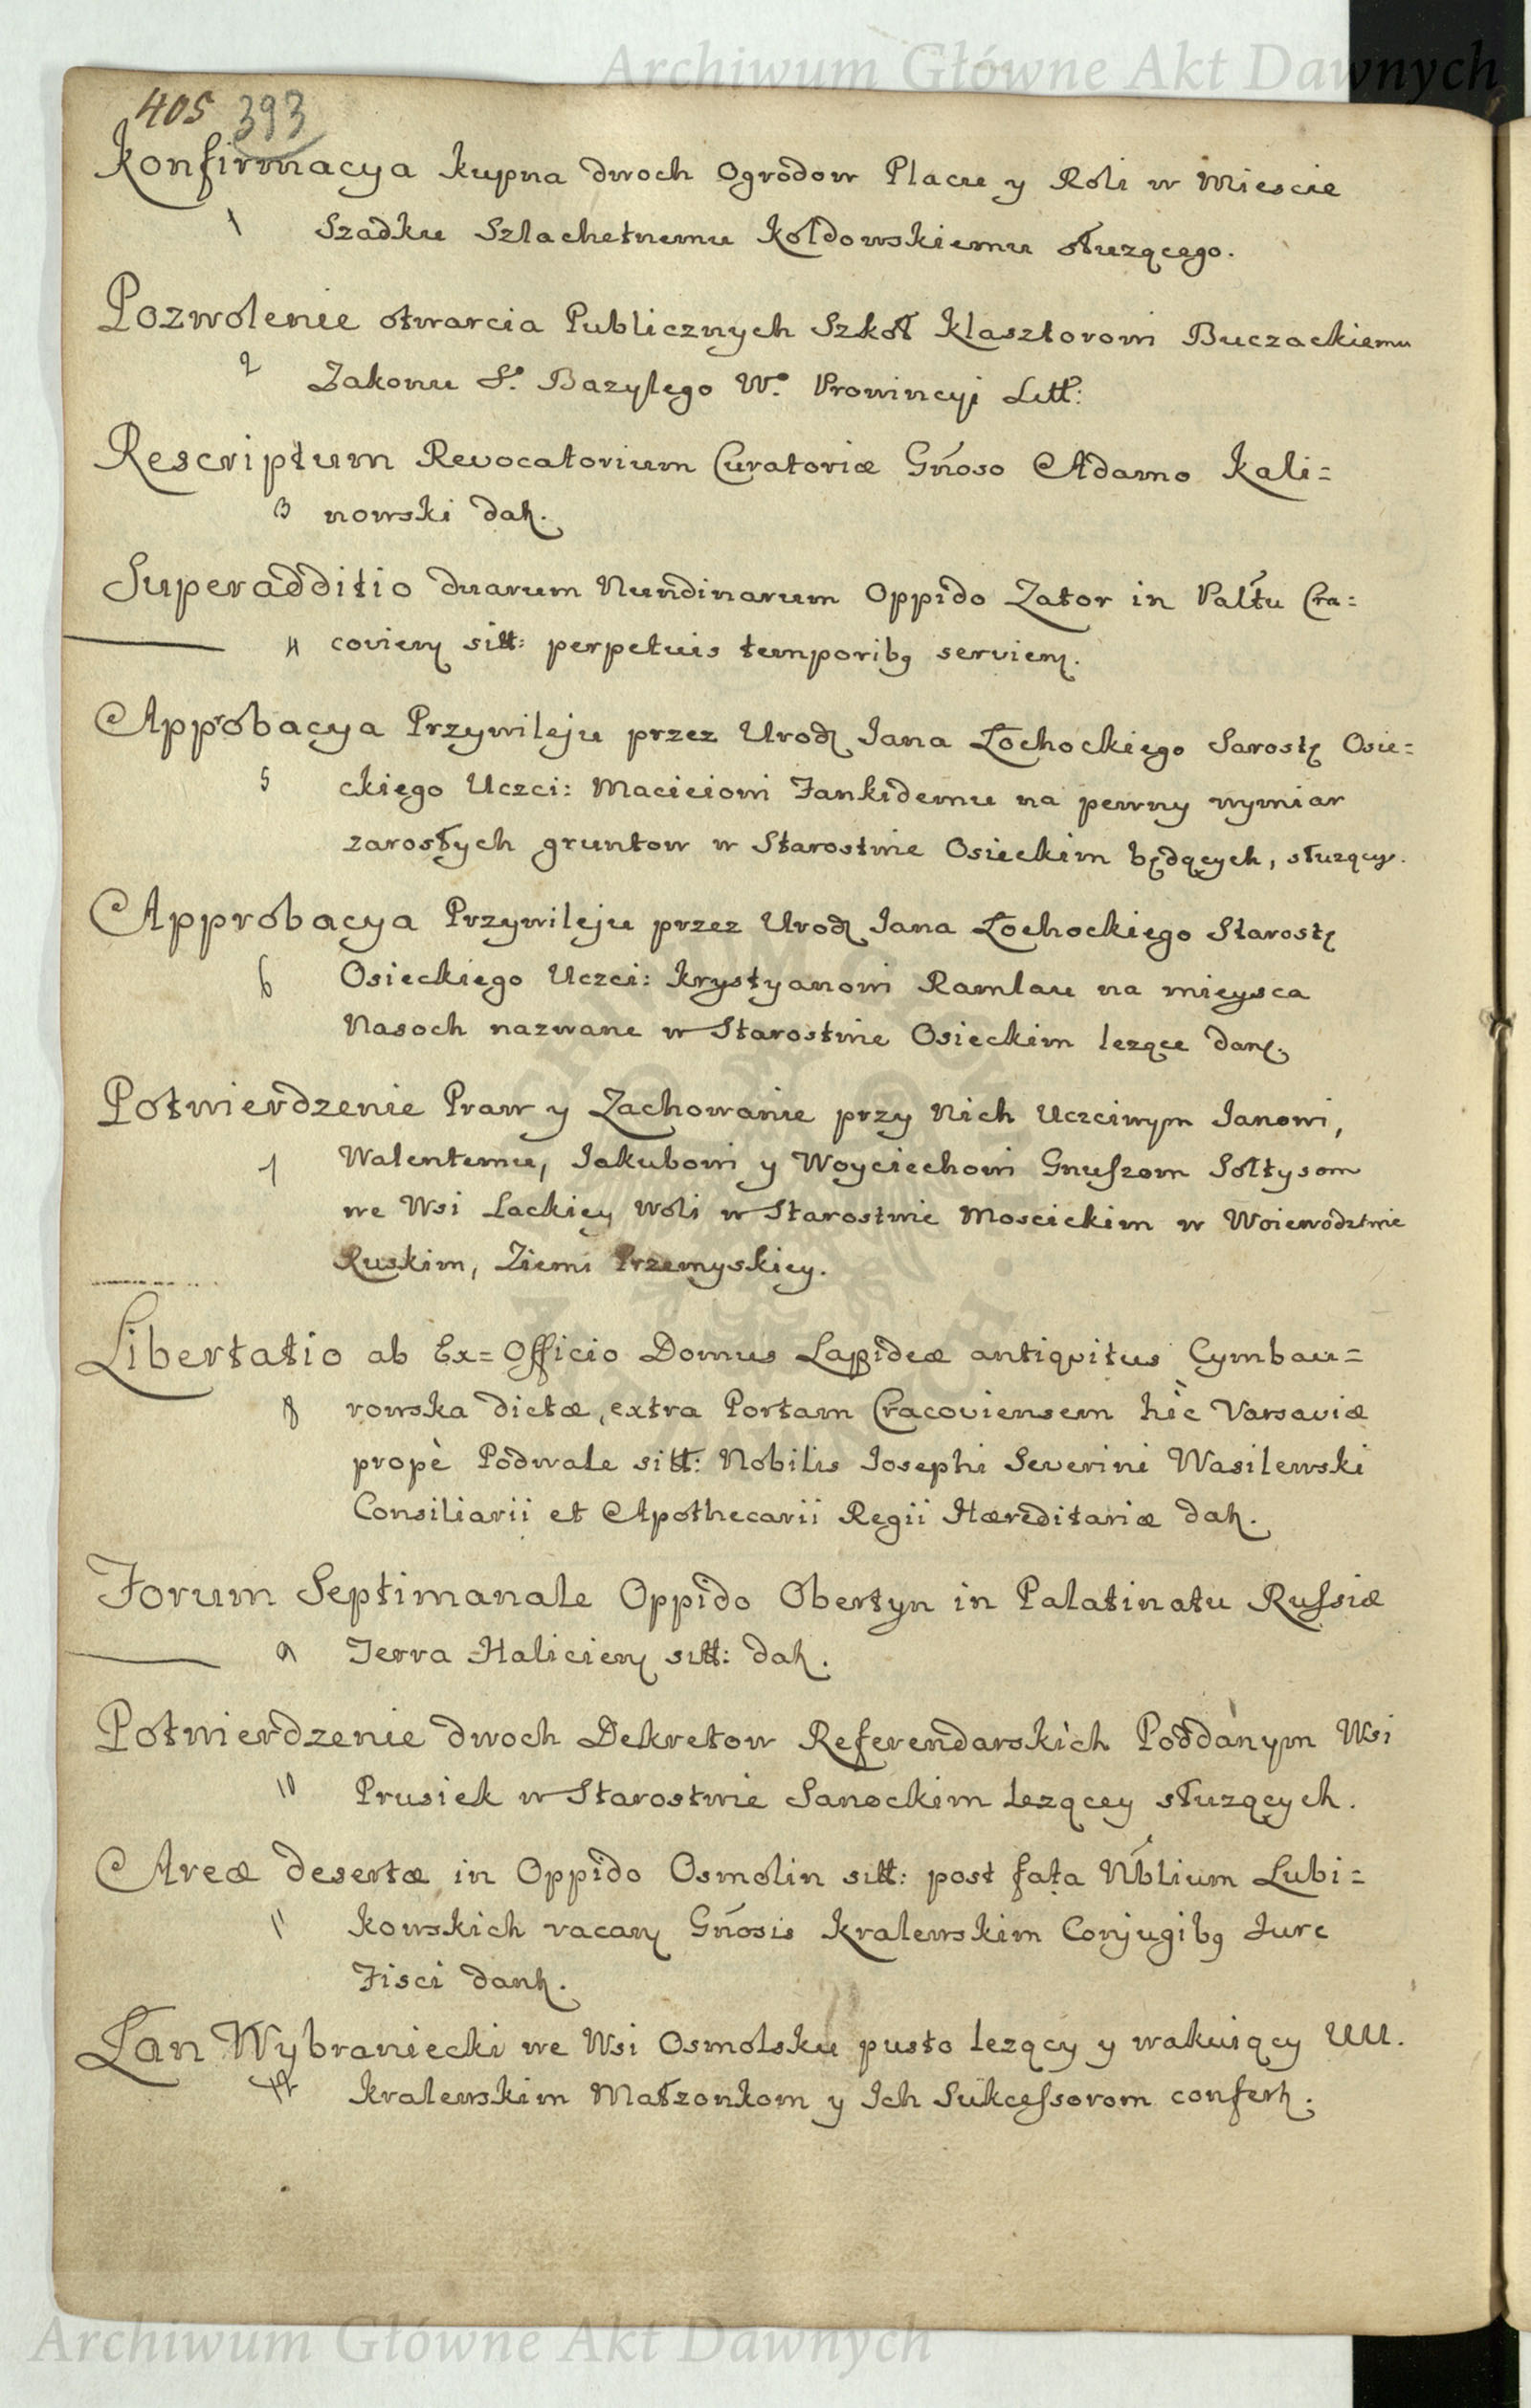 Archiwum Główne Akt Dawnych
405 393
Konfirmacya kupna dwoch Ogrodow Placu y Roli w Miescie
1 Szadku Szlachetnemu Kołdowskiemu służącego.
Pozwolenie otwarcia Publicznych Szkoł Klasztorowi Buczackiemu
2 Zakonu S. Bazylego W. Prowincyi Litt:
Rescriptum Revocatorium Curatoriæ Gńoso Adamo Kali=
3 nowski dat.
Superadditio duarum Nundinarum Oppido Zator in Palťu Cra=
4 covien sitt: perpetuis temporibq servien.
Approbacya Przywileju przez Urodz Jana Łochockiego Sarostę Osie=
5 ckiego Uczci: Macieiowi Fankidemu na pewny wymiar
zarosłych gruntow w Starostwie Osieckim będących, służący.
Approbacya Przywileju przez Urodz Jana Łochockiego Starostę
6 Osieckiego Uczci: Krystyanowi Ramlau na mieysca
Nasoch nazwane w Starostwie Osieckim lezące dany.
Potwierdzenie Praw y Zachowanie przy Nich Uczciwym Janowi,
7 Walentemu, Jakubowi y Woyciechowi Gnuſzom Sołtysom
we Wsi Lackiey Woli w Starostwie Moscickim w Woiewodztwie
Ruskim, Ziemi Przemyskiey.
Libertatio ab Ex=Officio Domus Lapideæ antiqvitus Cymbau=
8 rowska dictæ, extra Portam Cracoviensem hìc Varsaviæ
propè Podwale sitt: Nobilis Josephi Severini Wasilewski
Consiliarii et Apothecarii Regii Hæreditariæ dat.
Forum Septimanale Oppido Obertyn in Palatinatu Ruſsiæ
9 Terra Halicien sitt: dat.
Potwierdzenie dwoch Dekretow Referendarskich Poddanym Wsi
10 Prusiek w Starostwie Sanockim lezącey służących.
Areæ desertæ in Oppido Osmolin sitt: post fata Nb́lium Lubi=
11 kowskich vacan Gńosis Kralewskim Conjugibq Jure
Fisci dant.
Łan Wybraniecki we Wsi Osmolsku pusto lezący y wakuiący UU.
12 Kralewskim Małzonkom y Ich Sukceſsorom confert.
Archiwum Główne Akt Dawnych